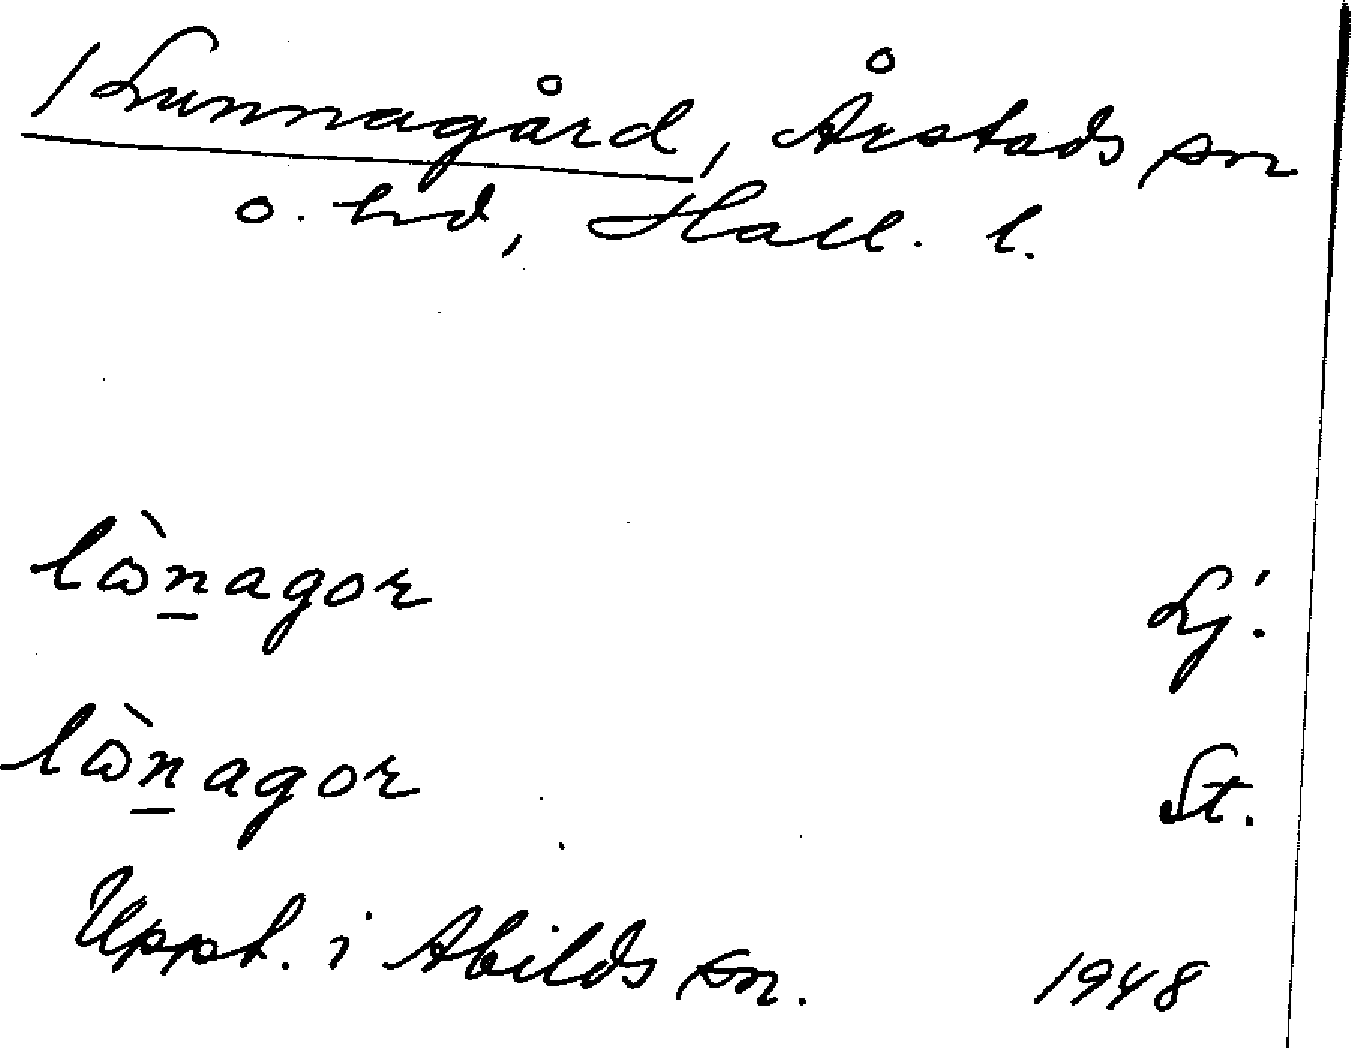 / Lunnagård, Årstads sn
o. hd, Hall. l.
lὼn̲agor Lj.
lὼn̲agor St.
Uppt. i Abilds sn. 1948